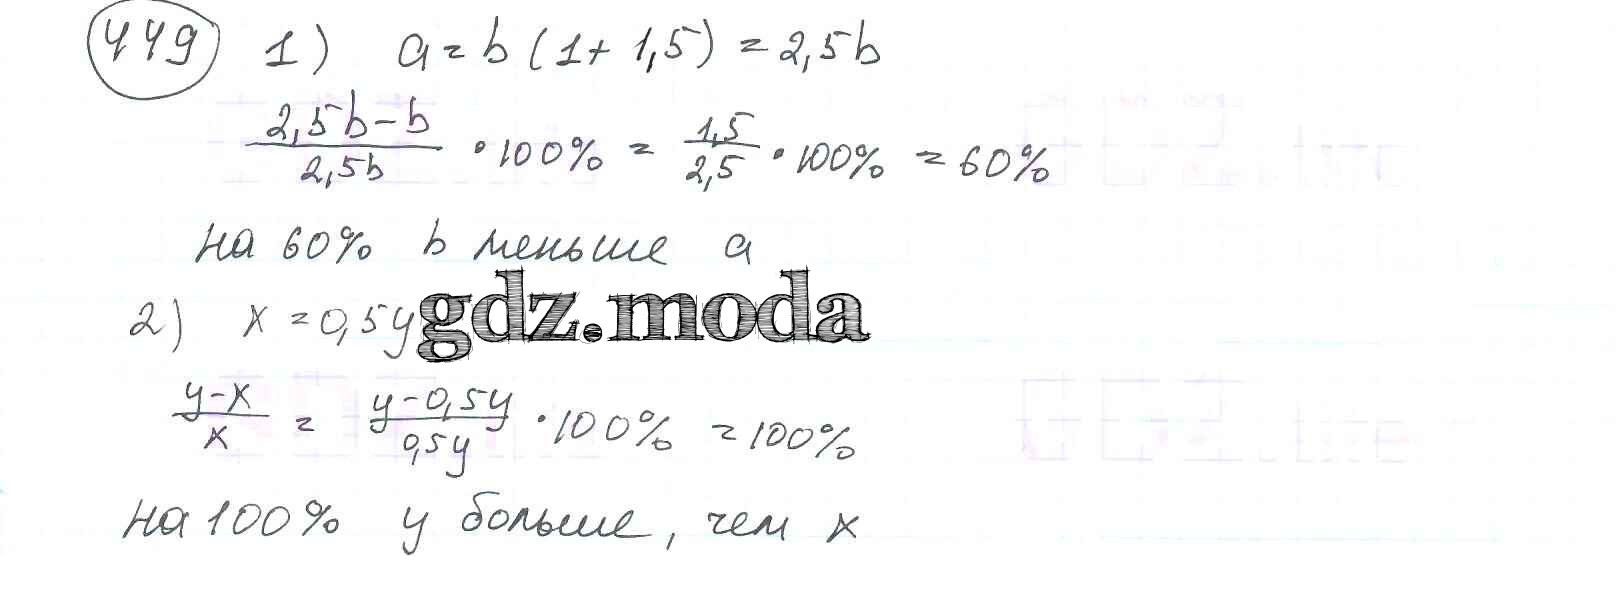 449 1) a = b (1 + 1,5) = 2,5b
2,5b - b / 2,5b · 100% = 1,5 / 2,5 · 100% = 60%
на 60% b меньше a
2) x = 0,5y
gdz.moda
y - x / x = y - 0,5y / 0,5y · 100% = 100%
на 100% y больше, чем x